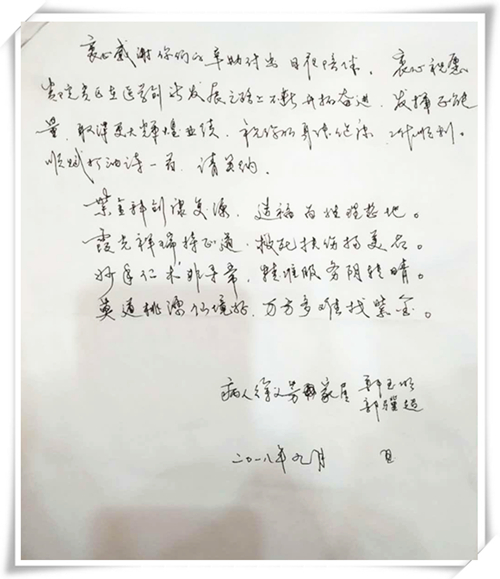 衷心感谢你们的辛勤付出日夜陪伴。衷心祝愿
贵院在医药创新发展之路上不断开拓奋进,发挥正能
量,取得更大辉煌业绩,祝你们身体健康,工作顺利。
顺赋打油诗一首,请笑纳。
紫金神剑 复源,造福百姓 地。
霞光祥瑞持正道,救死扶伤扬美名。
妙手仁术非寻常,精准服务阴转晴。
莫道桃源仙境好,万方多难找紫金。
病人徐 芳家属 郭玉
郭 超
二〇一八年九月 日